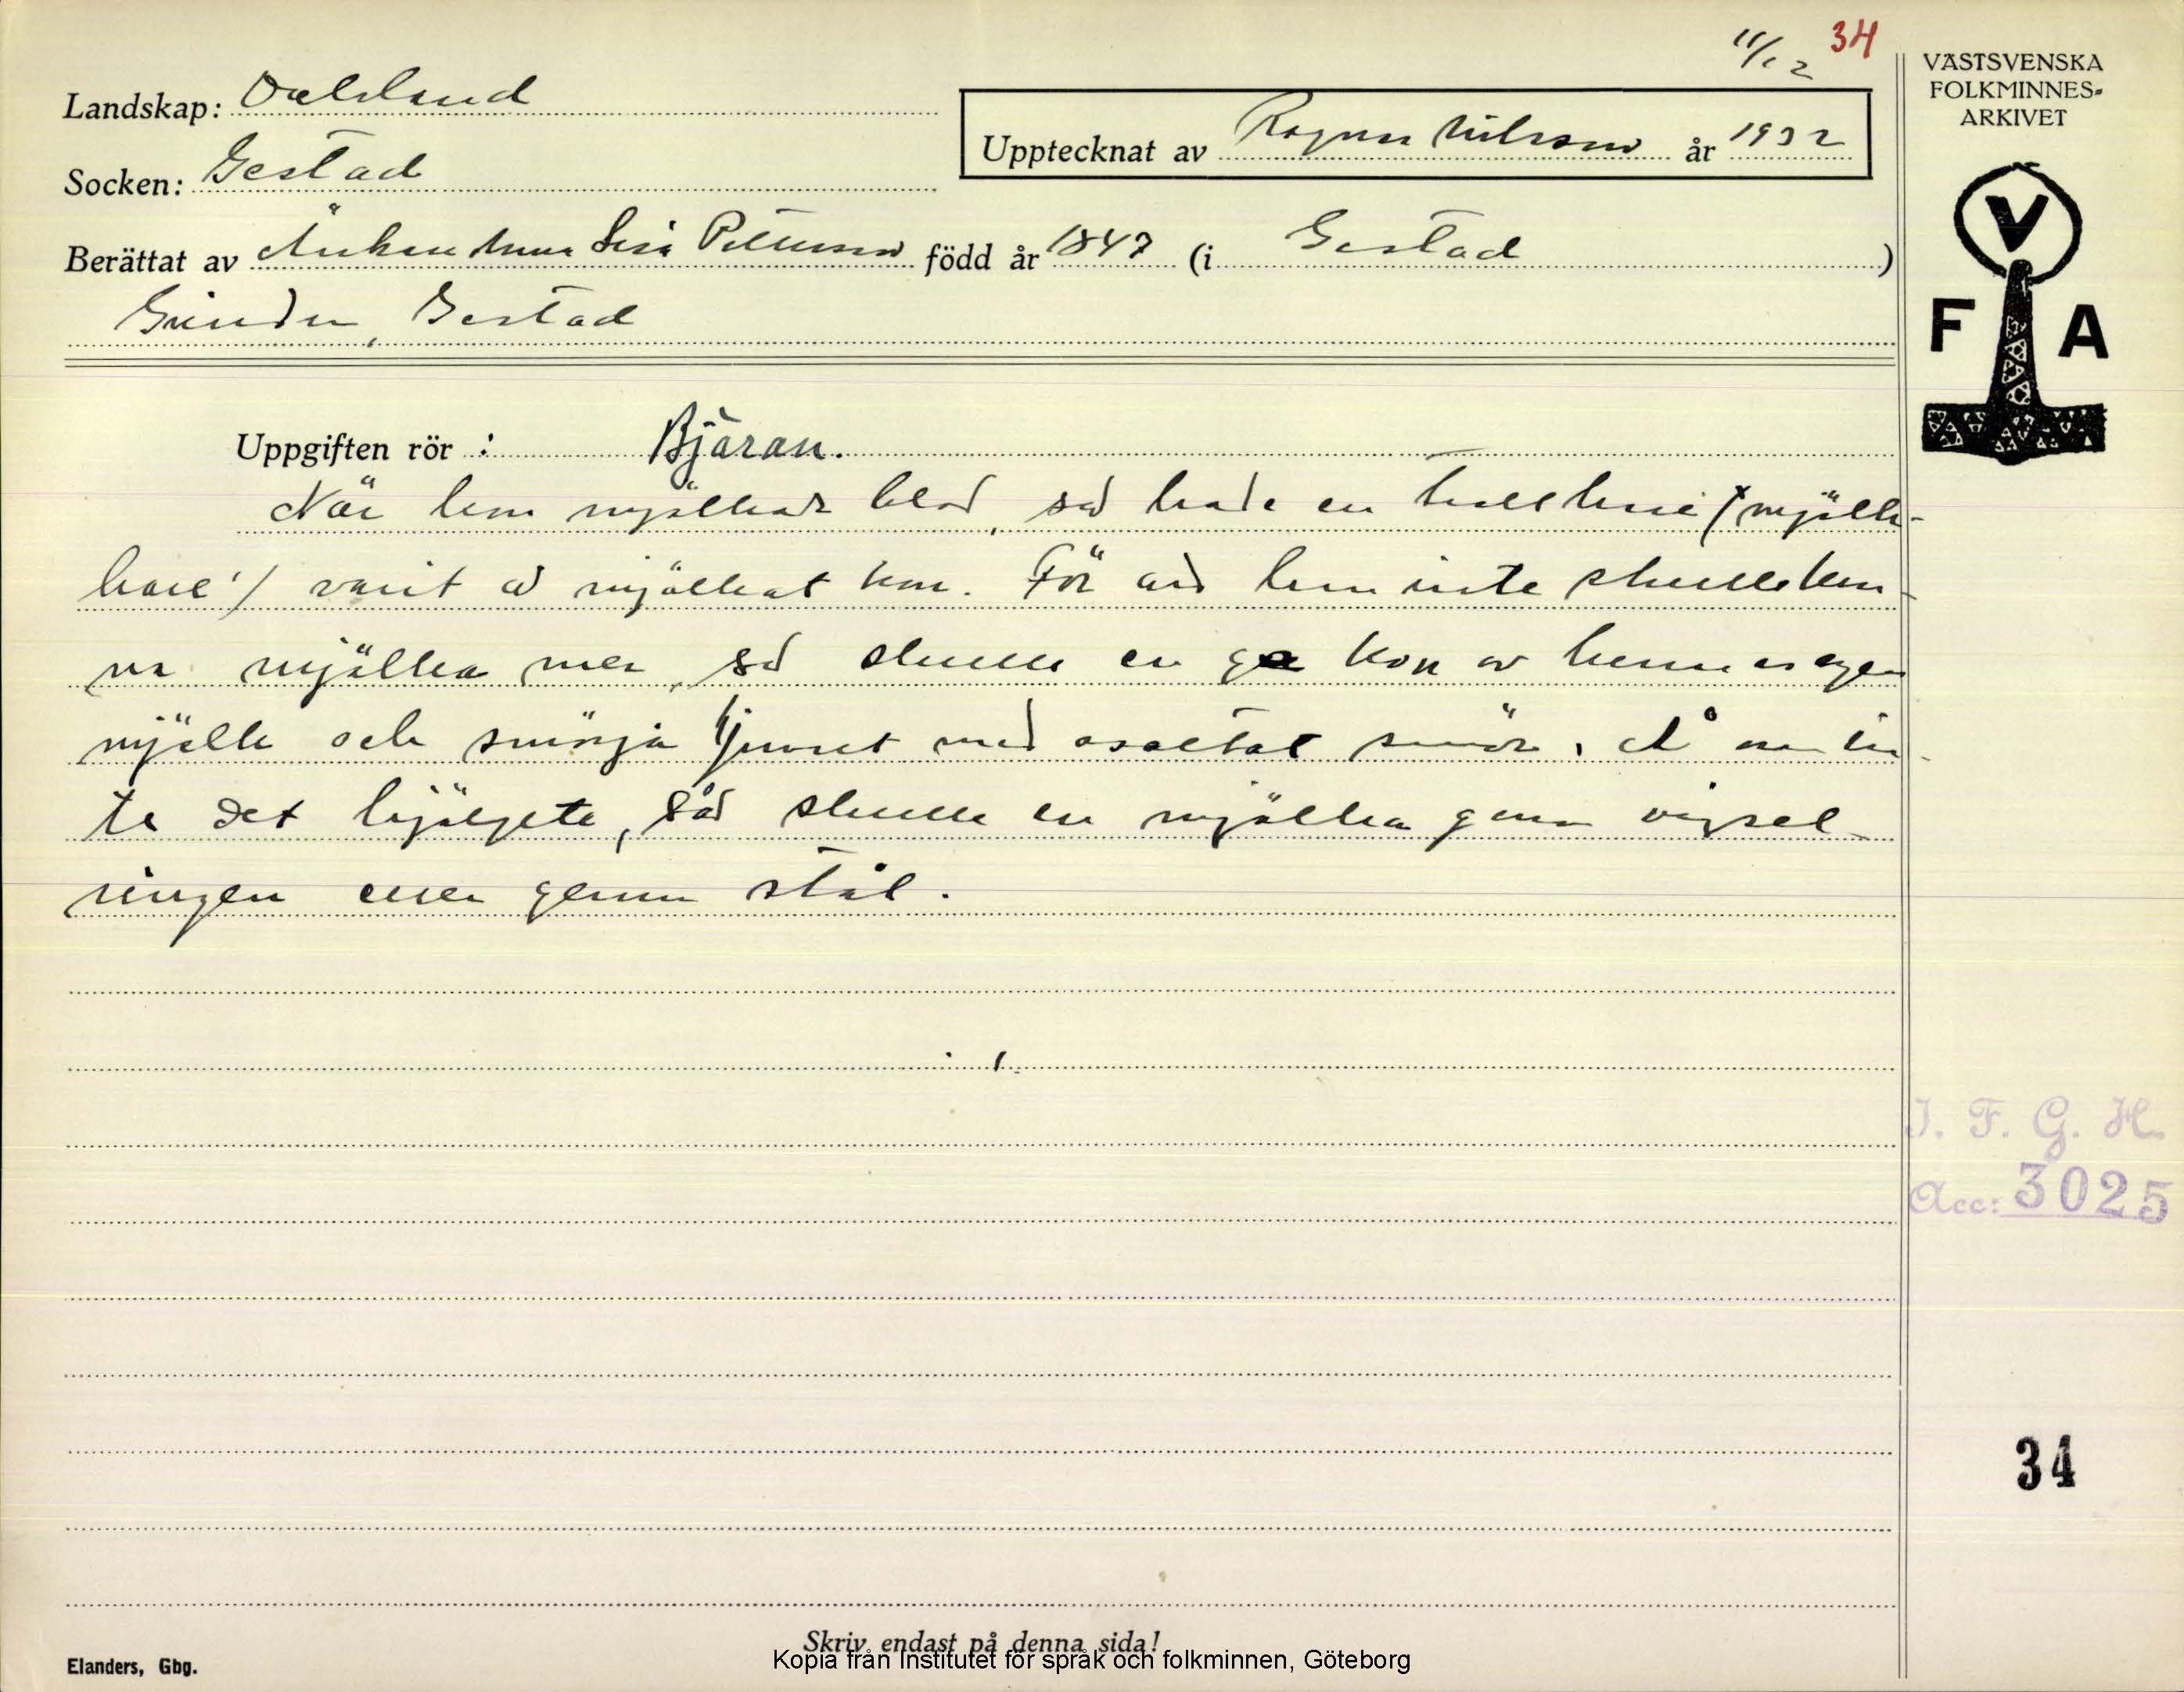 11/12 34
VÄSTSVENSKA
FOLKMINNES-
ARKIVET
Landskap: Dalsland
Upptecknat av Ragnar Nilsson år 1932
Socken: Gestad
Berättat av Änkan Anna Lisa Pettersson född år 1847 (i Gestad)
Gestad
V
F A
Uppgiften rör : Bjäran.
När kon mjölkar blod, så hade en trollhare (mjölk-
hare) varit å mjölkat kon. För att hon inte skulle kun-
na mjölka mer, så skulle en ge kon av hennes egen
mjölk och smörja juvret med osaltat smör. Å om in-
te det hjälpte, så skulle en mjölka genom vigsel-
ringen eller genom stål.
I. F. G. H.
Acc: 3025
34
Skriv endast på denna sida!
Kopia från Institutet för språk och folkminnen, Göteborg
Elanders, Gbg.